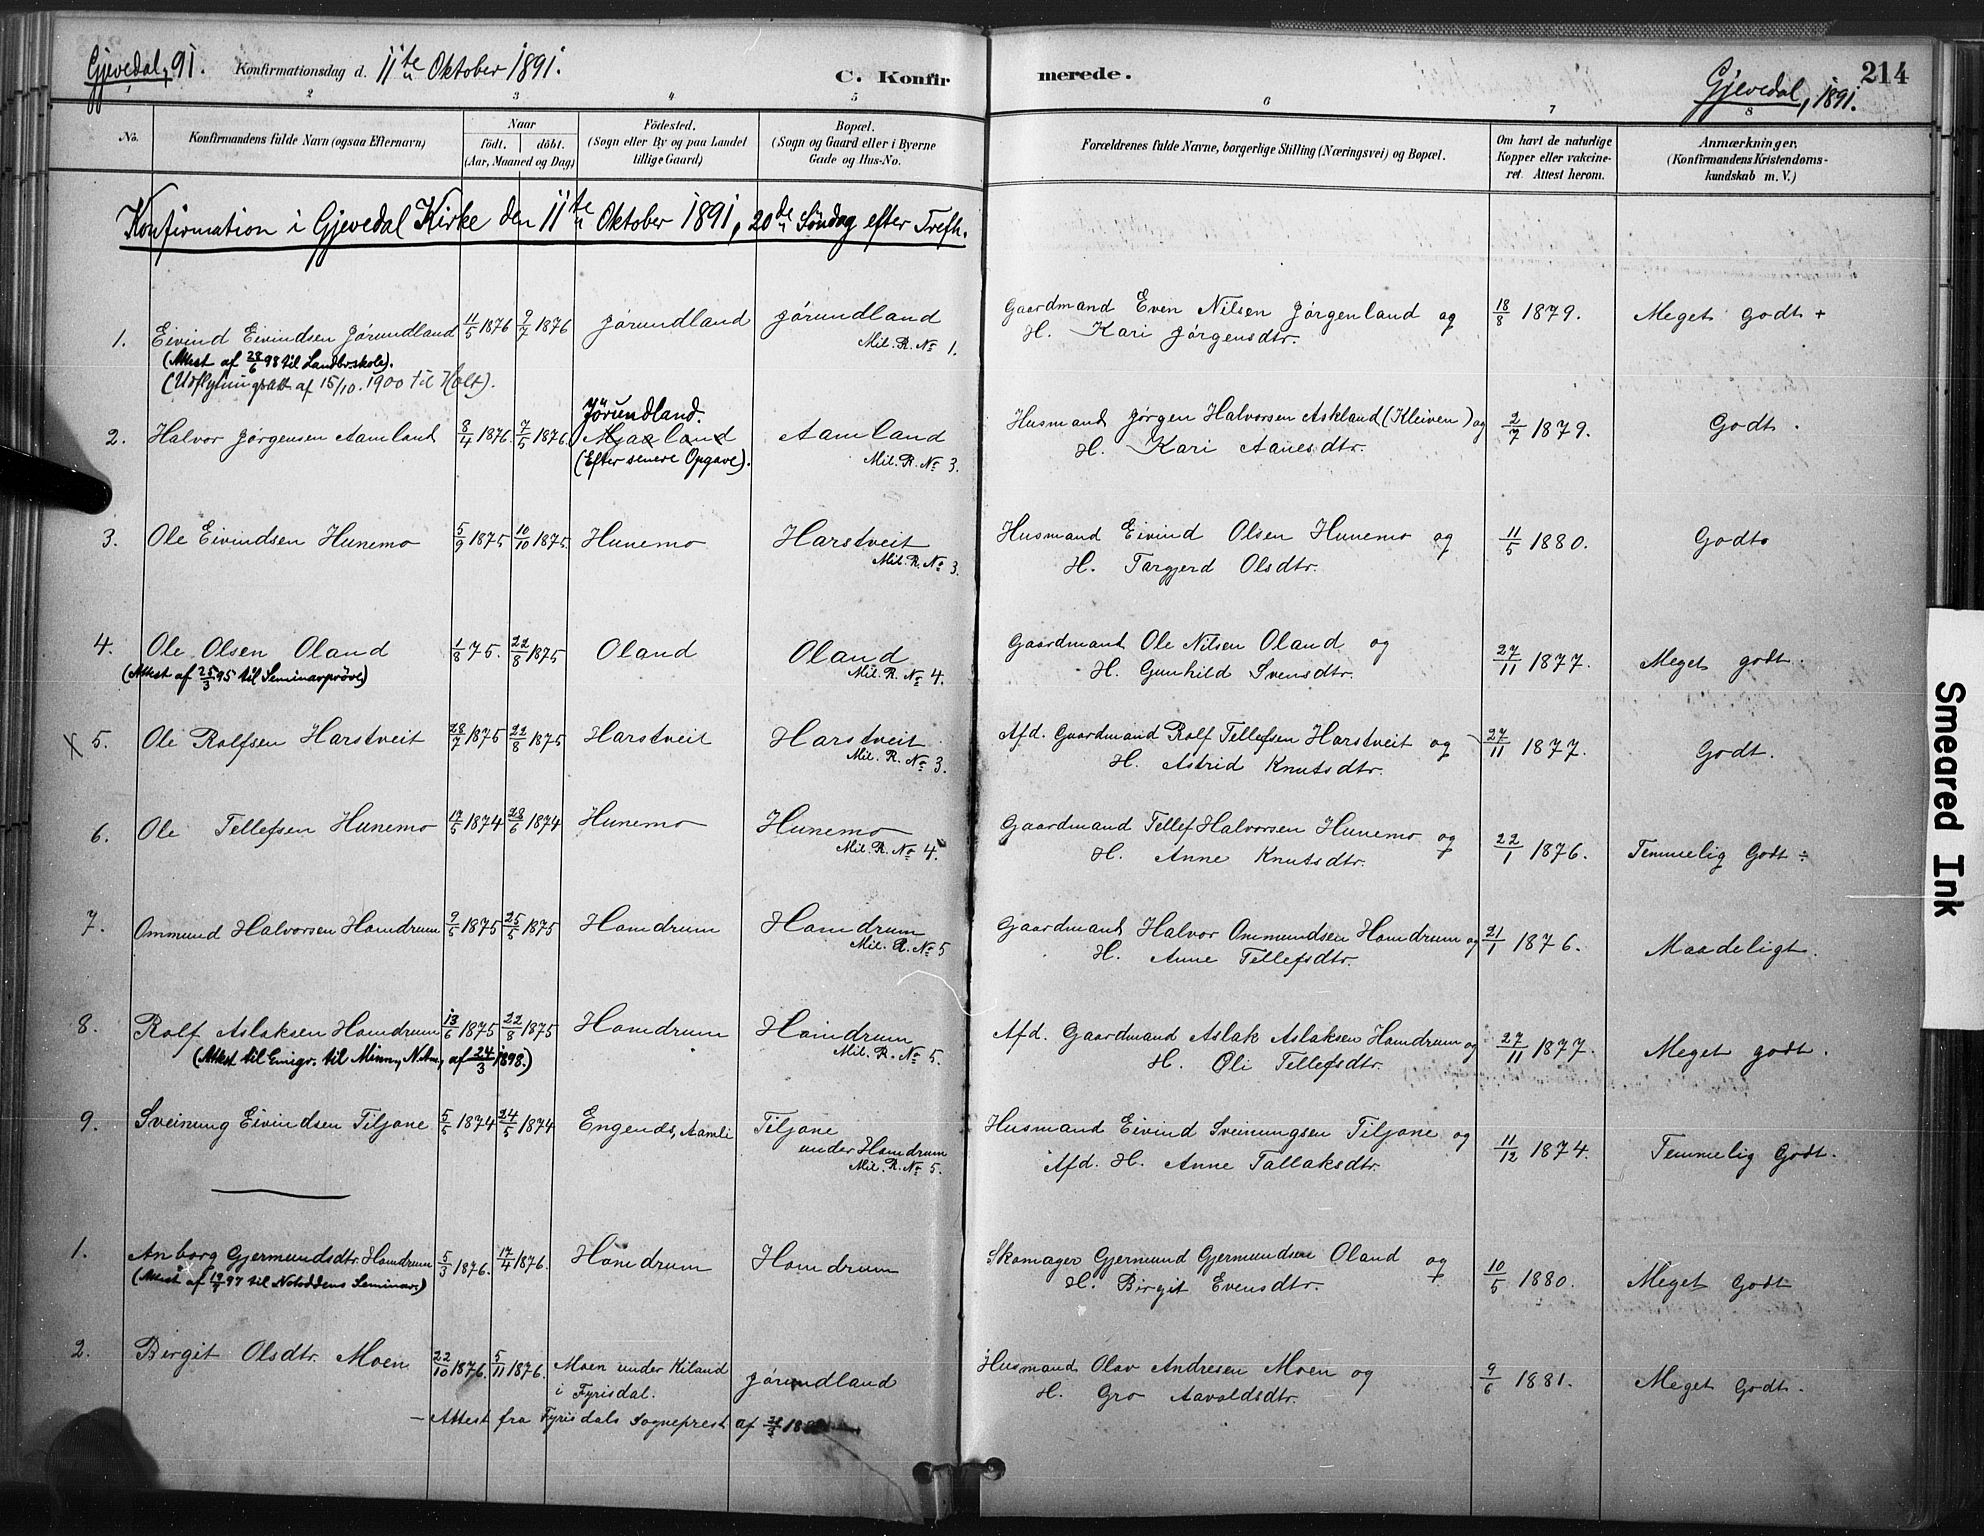 Gjevedal, 91. Konfirmationsdag d. 11te Oktober 1891. C. Konfirmerede. Gjevedal, 1891. 214
2 3 4 5 6 7 8
No. Konfirmandens fulde Navn (ogsaa Efternavn)
Naar født. døbt. (Aar, Maaned og Dag)
Fødested. (Sogn eller By og paa Landet tillige Gaard)
Bopæl. (Sogn og Gaard eller i Byerne Gade og Hus-No.
Forældrenes fulde Navne, borgerlige Stilling (Næringsvei) og Bopæl.
Om havt de naturlige Kopper eller vakcineret. Attest herom.
Anmærkninger, (Konfirmandens Kristendomskundskab m. V.)
Konfirmation i Gjevedal Kirke den 11te Oktober 1891, 20de Søndag efter Trefh.
1. Eivind Eivindsen Jørundland 11/5 1876 9/7 1876 Jørundland Jørundland Gaardmand Even Nilsen Jørgenland og 18/8 1879. Meget godt +
Mil. R. No 1. H. Kari Jørgensdtr.
(Attest af 28/6 98 til Landbr.skole).
(Udflytningsatt af 15/10. 1900 til Holt).
Jörundland.
2. Halvor Jørgensen Aamland 8/4 1876. 7/5 1876. Mjaaland Aamland Husmand Jørgen Halvorsen Askland (Kleiven) og 2/7 1879. Godt.
(Efter senere Opgave). Mil. R. No 3. H. Kari Aanesdtr.
3. Ole Eivindsen Hunemo 5/9 1875 10/10 1875. Hunemo Harstveit Husmand Eivind Olsen Hunemo og 11/5 1880. Godt
Mil. R. No 3. H. Targjerd Olsdtr.
4. Ole Olsen Oland 1/8 75. 22/8 1875 Oland Oland Gaardmand Ole Nilsen Oland og 27/11 1877. Meget godt.
(Attest af 25/3 95 til Seminarprøve) Mil. R. No 4. H. Gunhild Svensdtr.
X 5. Ole Rolfsen Harstveit 28/7 1875 22/8 1875 Harstveit Harstveit Afd. Gaardmand Rolf Tellefsen Harstveit og 27/11 1877. Godt.
Mil. R. No 3. H. Astrid Knutsdtr.
6. Ole Tellefsen Hunemo 17/5 1874 28/6 1874 Hunemo Hunemo Gaardmand Tellef Halvorsen Hunemo og 22/1 1876. Temmelig Godt ÷
Mil. R. No 4. H. Anne Knutsdtr.
7. Ommund Halvorsen Homdrum 9/5 1875 25/5 1875 Homdrum Homdrum Gaardmand Halvor Ommundsen Homdrum og 21/1 1876. Maadeligt.
Mil. R. No 5 H. Anne Tellefsdtr.
8. Rolf Aslaksen Homdrum 13/6 1875 22/8 1875 Homdrum Homdrum Afd. Gaardmand Aslak Aslaksen Homdrum og 27/11 1877. Meget godt.
(Attest til Emigr. til Minn., N. Am., af 24/3 1893.) Mil. R. No 5. H. Oli Tellefsdtr.
9. Sveinung Eivindsen Tiljane 5/5 1874 24/5 1874 Engends, Aamli Tiljane Husmand Eivind Sveinungsen Tiljane og 11/12 1874. Temmelig Godt.
under Homdrum Afd. H. Anne Tallaksdtr.
Mil. R. No 5.
1. Anborg Gjermundsdtr. Homdrum 5/3 1876. 17/4 1876. Homdrum Homdrum Skomager Gjermund Gjermundsen Oland og 10/5 1880. Meget Godt
(Attest af 19/7 97 til Notoddens Seminar.) H. Birgit Evensdtr.
2. Birgit Olsdtr. Moen 22/10 1876. 5/11 1876. Moen under Kiland Jørundland Husmand Olav Andresen Moen og 9/6 1881. Meget Godt.
i Fyrisdal. H. Gro Aavoldsdtr.
— Attest fra Fyrisdals Sogneprest af
Smeared Ink